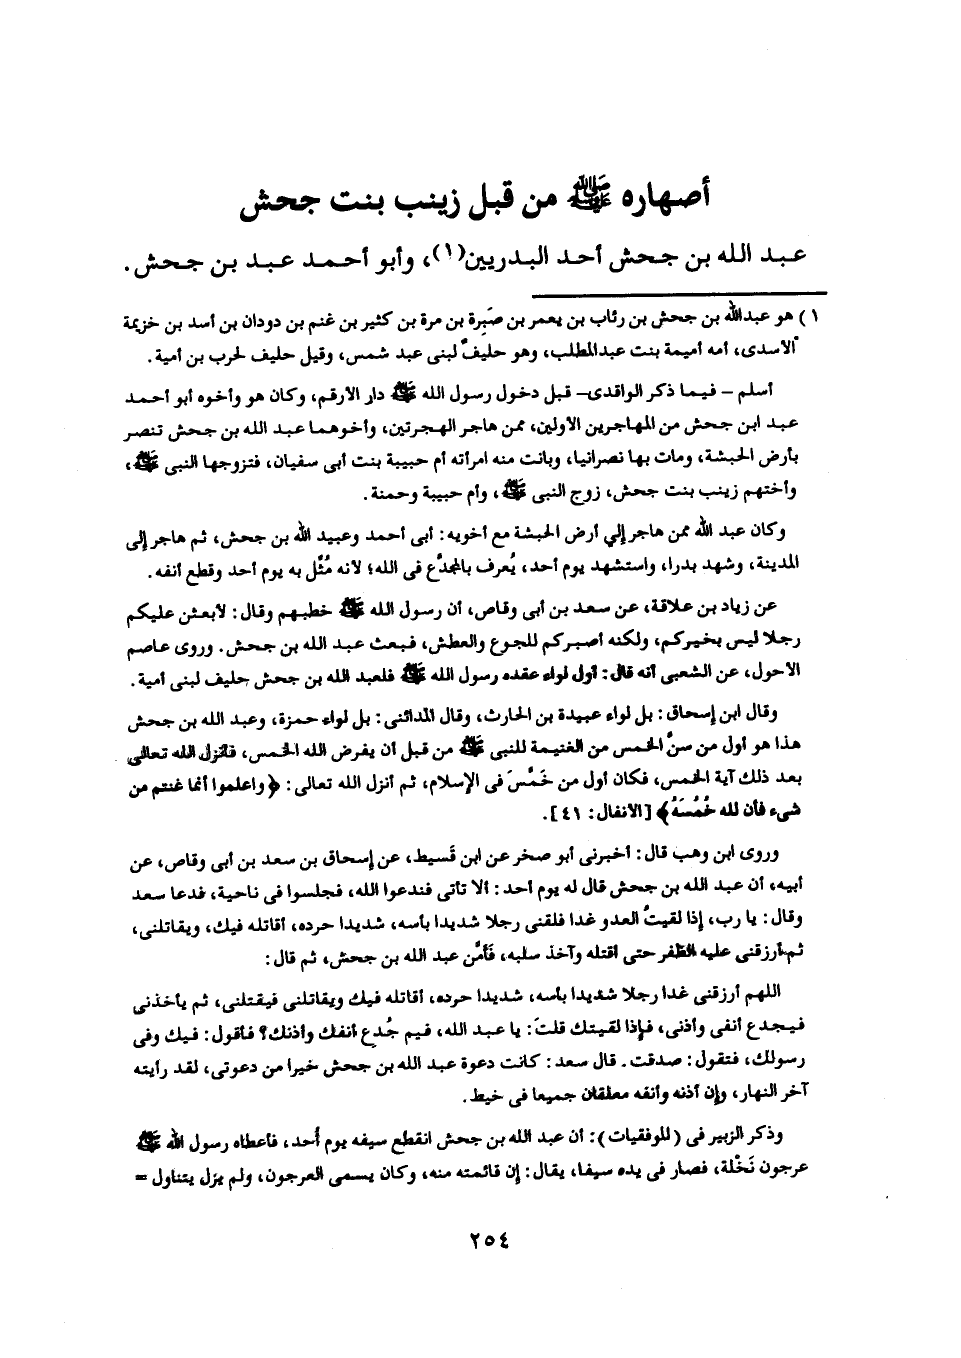 أصهاره ﷺ من قبل زينب بنت جحش
عبد الله بن جحش أحد البدريين(١)، وأبو أحمد عبد بن جحش.
١) هو عبدالله بن جحش بن رئاب بن يعمر بن صَبِرة بن مرة بن كثير بن غنم بن دودان بن أسد بن خزيمة
الأسدى، أمه أميمة بنت عبدالمطلب، وهو حليفٌ لبنى عبد شمس، وقيل حليف لحرب بن أمية.
أسلم – فيما ذكر الواقدى– قبل دخول رسول الله ﷺ دار الأرقم، وكان هو وأخوه أبو أحمد
عبد ابن جحش من المهاجرين الأولين، ممن هاجر الهجرتين، وأخوهما عبد الله بن جحش تنصر
بأرض الحبشة، ومات بها نصرانيا، وبانت منه امرأته أم حبيبة بنت أبى سفيان، فتزوجها النبى ﷺ،
وأختهم زينب بنت جحش، زوج النبى ﷺ، وأم حبيبة وحمنة.
وكان عبد الله ممن هاجر إلي أرض الحبشة مع أخويه: أبى أحمد وعبيد الله بن جحش، ثم هاجر إلى
المدينة، وشهد بدرا، واستشهد يوم أحد، يُعرف بالمجدَّع فى الله؛ لأنه مُثِّل به يوم أحد وقطع أنفه.
عن زياد بن علاقة، عن سعد بن أبى وقاص، أن رسول الله ﷺ خطبهم وقال: لأبعثن عليكم
رجلا ليس بخيركم، ولكنه أصبركم للجوع والعطش، فبعث عبد الله بن جحش. وروى عاصم
الأحول، عن الشعبى أنه قال: أول لواء عقده رسول الله ﷺ فلعبد الله بن جحش حليف لبنى أمية.
وقال ابن إسحاق: بل لواء عبيدة بن الحارث، وقال المدائنى: بل لواء حمزة، وعبد الله بن جحش
هذا هو أول من سنَّ الخمس من الغنيمة للنبى ﷺ من قبل أن يفرض الله الخمس، فأنزل الله تعالى
بعد ذلك آية الخمس، فكان أول من خَمَّسَ فى الإسلام، ثم أنزل الله تعالى: ﴿واعلموا أنما غنتم من
شىء فأن لله خُمُسَهُ﴾ [الأنفال: ٤١].
وروى ابن وهب قال: أخبرنى أبو صخر عن ابن قَسيط، عن إسحاق بن سعد بن أبى وقاص، عن
أبيه، أن عبد الله بن جحش قال له يوم أحد: ألا تأتى فندعوا الله، فجلسوا فى ناحية، فدعا سعد
وقال: يا رب، إذا لقيتُ العدو غدا فلقنى رجلا شديدا بأسه، شديدا حرده، أقاتله فيك، ويقاتلنى،
ثم أرزقنى عليه الظفر حتى أقتله وآخذ سلبه، فَأمَّن عبد الله بن جحش، ثم قال:
اللهم أرزقنى غدا رجلا شديدا بأسه، شديدا حرده، أقاتله فيك ويقاتلنى فيقتلنى، ثم يأخذنى
فيجدع أنفى وأذنى، فإذا لقيتك قلتَ: يا عبد الله، فيم جُدِع أنفك وأذنك؟ فأقول: فيك وفى
رسولك، فتقول: صدقت. قال سعد: كانت دعوة عبد الله بن جحش خيرا من دعوتى، لقد رأيته
آخر النهار، وإن أذنه وأنفه معلقان جميعا فى خيط.
وذكر الزبير فى (الموفقيات): أن عبد الله بن جحش انقطع سيفه يوم أُحد، فأعطاه رسول الله ﷺ
عرجون نَخْلة، فصار فى يده سيفا، يقال: إن قائمته منه، وكان يسمى العرجون، ولم يزل يتناول =
٢٥٤